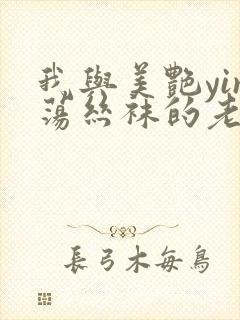 我與美艷yin
蕩絲袜的老
長弓木每鳥